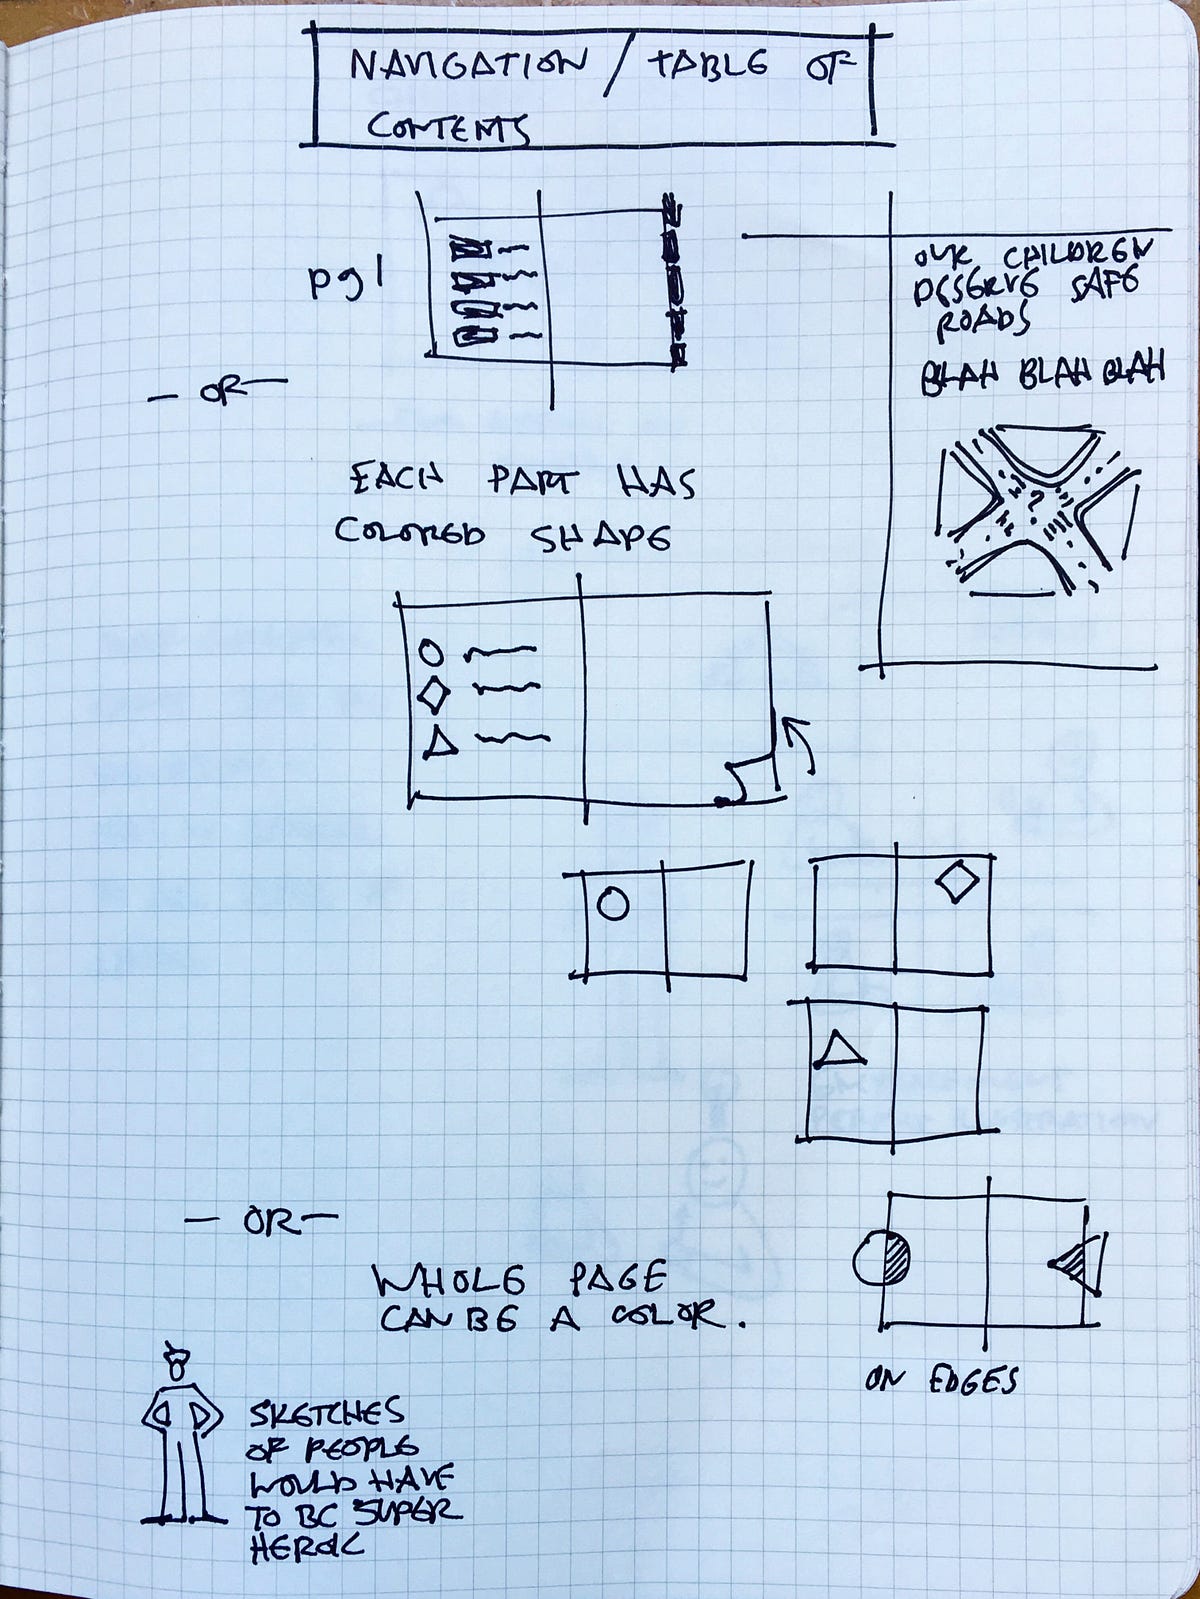 NAVIGATION / TABLE OF
CONTENTS
pg 1
OUR CHILDREN
DESERVE SAFE
ROADS
BLAH BLAH BLAH
— OR —
EACH PART HAS
COLORED SHAPE
?
— OR —
WHOLE PAGE
CAN BE A COLOR.
ON EDGES
SKETCHES
OF PEOPLE
WOULD HAVE
TO BE SUPER
HEROIC